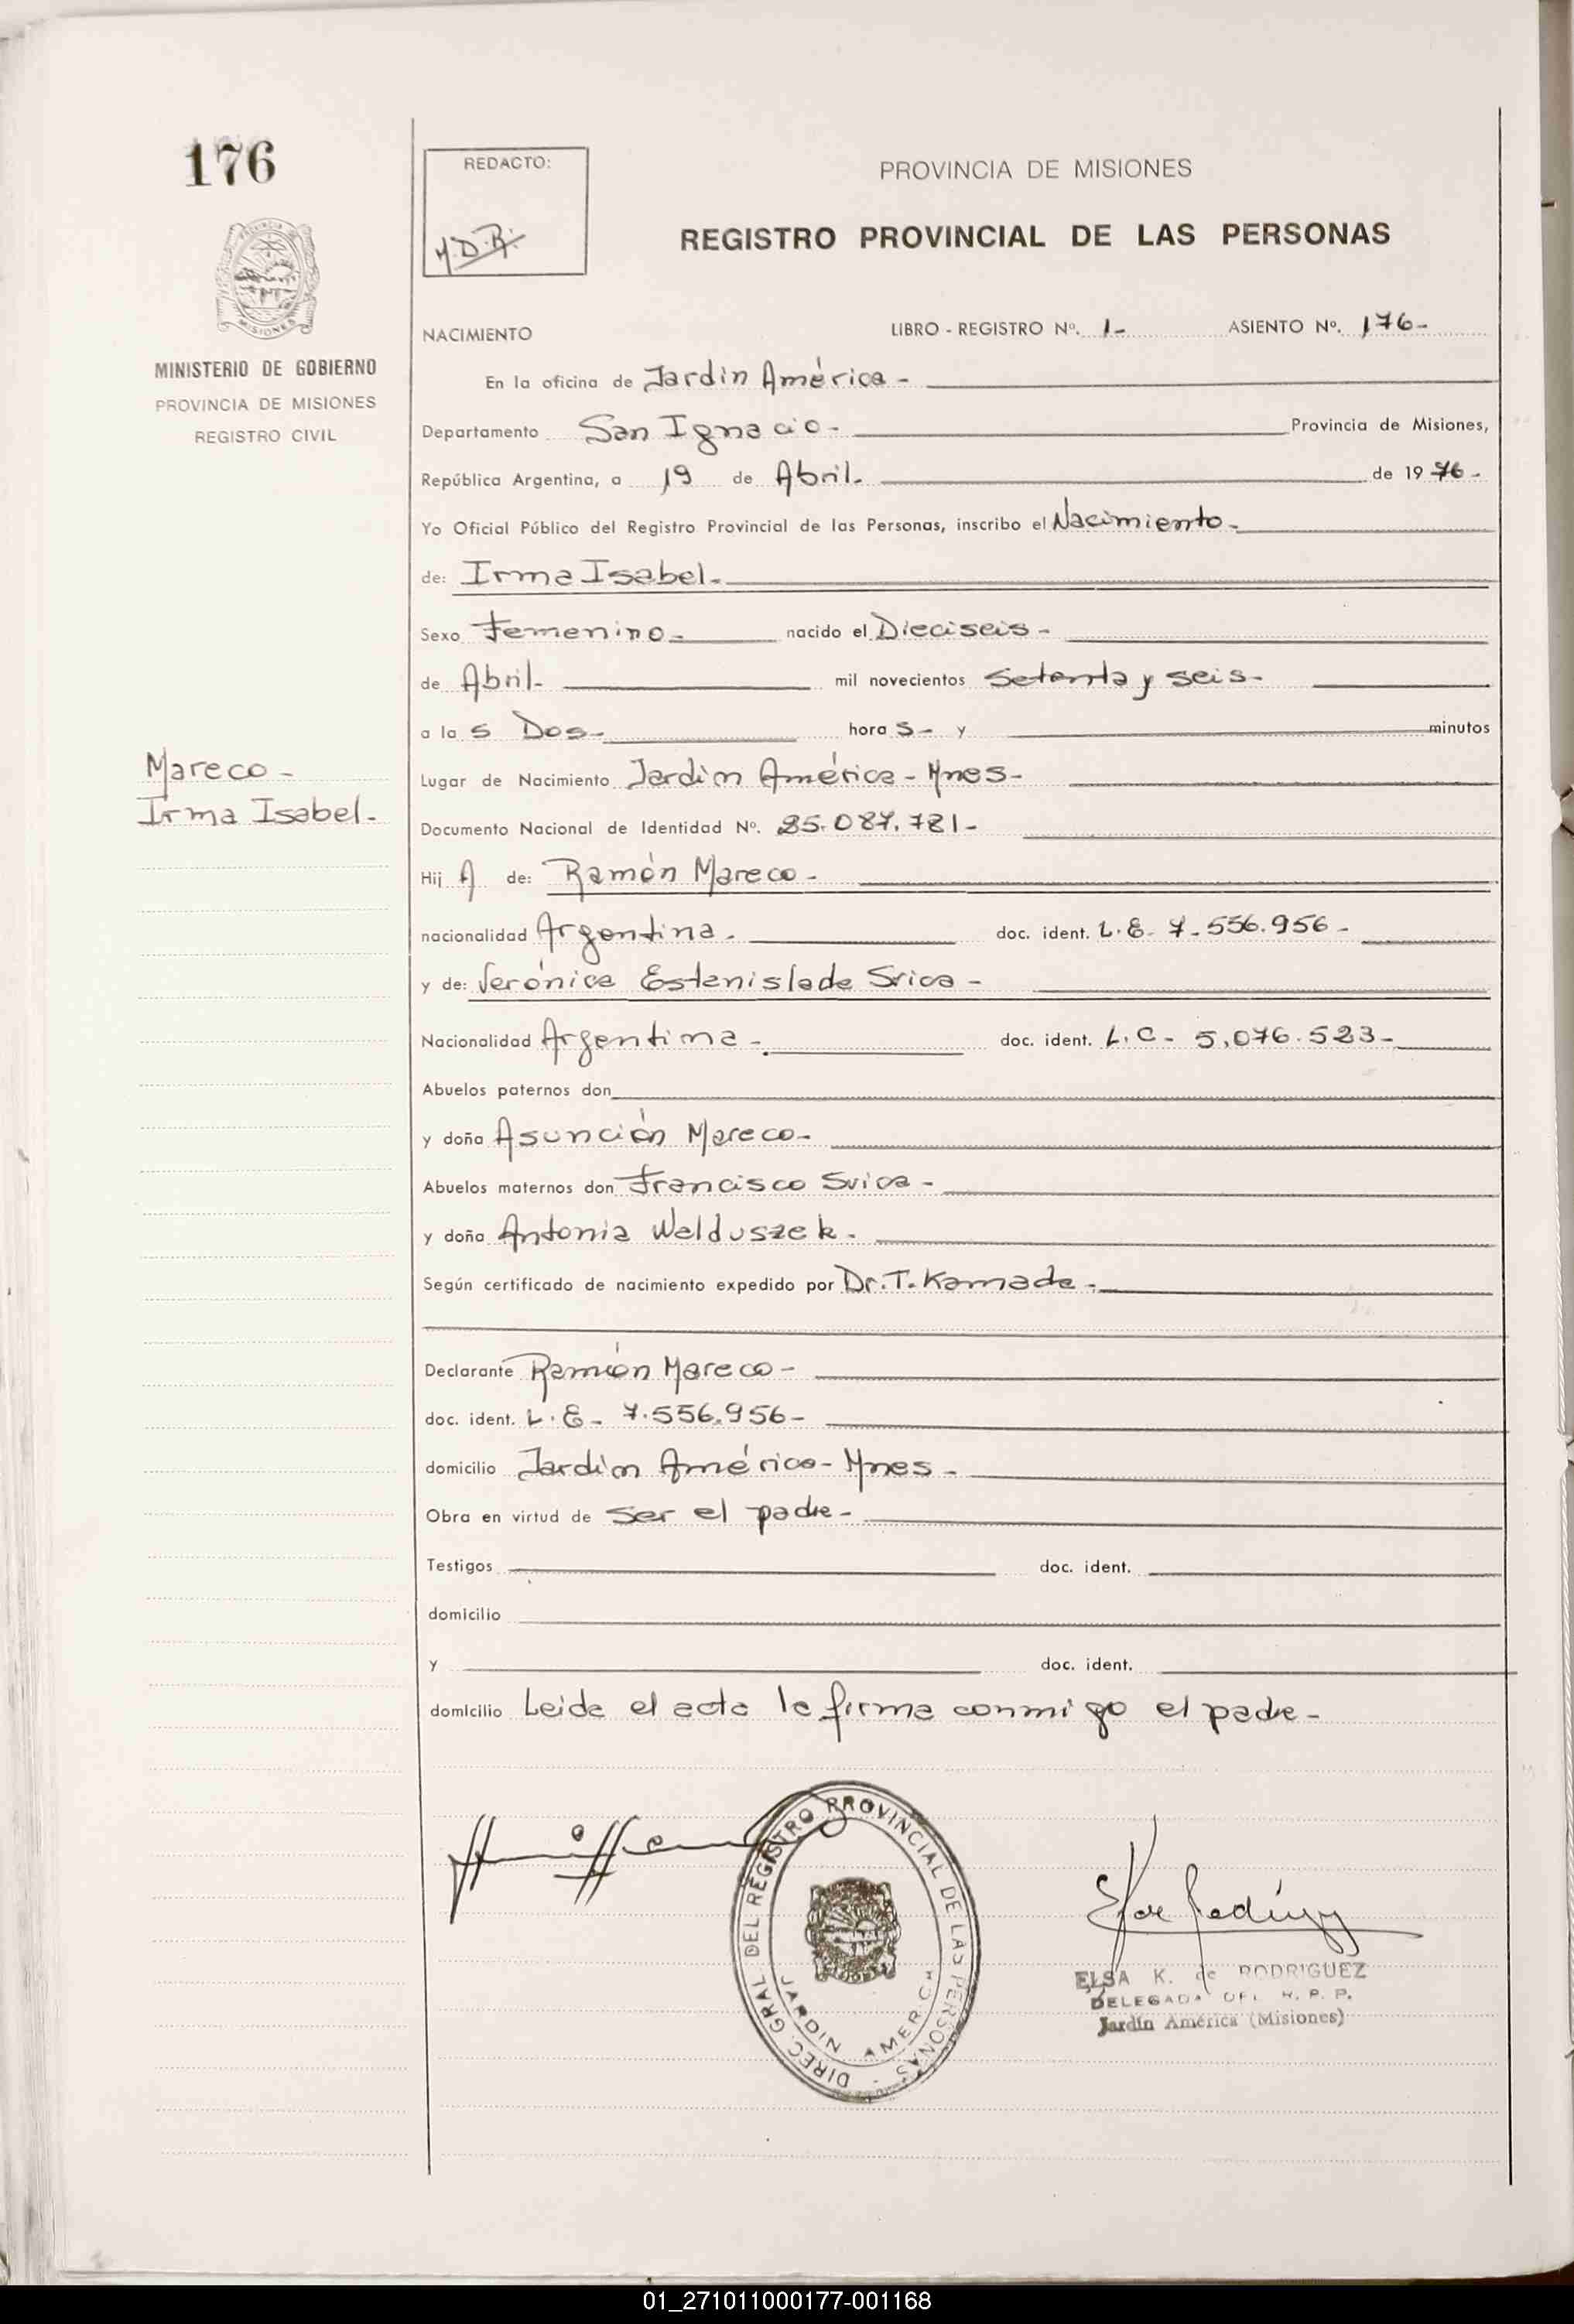 176
REDACTO:
PROVINCIA DE MISIONES
REGISTRO PROVINCIAL DE LAS PERSONAS
MISIONES
MINISTERIO DE GOBIERNO
PROVINCIA DE MISIONES
REGISTRO CIVIL
NACIMIENTO LIBRO - REGISTRO Nº. 1- ASIENTO Nº. 176-
En la oficina de Jardín América -
Departamento San Ignacio - Provincia de Misiones,
República Argentina, a 19 de Abril- de 1976-
Yo Oficial Público del Registro Provincial de las Personas, inscribo el Nacimiento-
de: Irma Isabel-
Sexo Femenino- nacido el Dieciseis-
de Abril- mil novecientos Setenta y seis-
a las Dos- horas- y minutos
Mareco-
Irma Isabel-
Lugar de Nacimiento Jardín América - Mnes-
Documento Nacional de Identidad Nº. 25.087.781-
Hij A de: Ramón Mareco-
nacionalidad Argentina- doc. ident. L.E- 7-556.956-
y de: Verónica Estanislada Srica-
Nacionalidad Argentina- doc. ident. L.C- 5.076.523-
Abuelos paternos don
y doña Asunción Mareco-
Abuelos maternos don Francisco Svica-
y doña Antonia Walduszek-
Según certificado de nacimiento expedido por Dr. T. Kamada-
Declarante Ramón Mareco-
doc. ident. L.E- 7.556.956-
domicilio Jardín América- Mnes-
Obra en virtud de ser el padre-
Testigos doc. ident.
domicilio
y doc. ident.
domicilio Leida el acta la firma conmigo el padre-
DIREC. GRAL. DEL REGISTRO PROVINCIAL DE LAS PERSONAS -
JARDIN AMERICA
ELSA K. de RODRIGUEZ
DELEGADA DEL R. P. P.
Jardín América (Misiones)
01_271011000177-001168